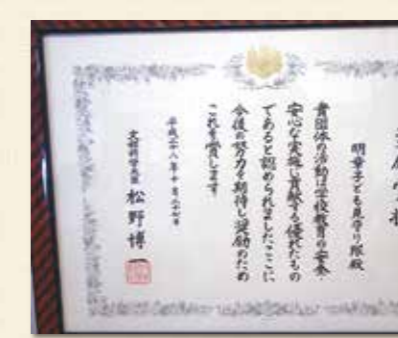 明章子ども見守り隊殿
貴団体の活動は学校教育の安全・
安心な実施に貢献する優れたもの
であると認められましたここに
今後の努力を期待し奨励のため
これを賞します
平成二十八年十月二十七日
文部科学大臣 松野博一